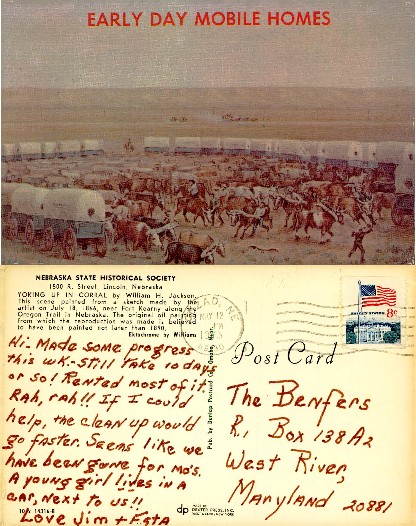 EARLY DAY MOBILE HOMES
NEBRASKA STATE HISTORICAL SOCIETY
1500 R. Street, Lincoln, Nebraska
YOKING UP IN CORRAL by William H. Jackson.
This scene painted from a sketch made by the
artist on July 18, 1866, near Fort Kearny along the
Oregon Trail in Nebraska. The original oil painting
from which the reproduction was made is believed
to have been painted not later than 1890.
Ektachrome by Williams
Hi. Made some progress
this wk.-still take 10 days
or so! Rented most of it
Rah, rah!! If I could
help, the clean up would
go faster. Seems like we
have been gone for mo's.
A young girl lives in a
car, next to us!!
Love Jim + Esta
Pub. by Dunlap Postcard Co., Omaha, Nebr.
MAY 12
8c
Post Card
The Benfers
R, Box 138A2
West River,
Maryland 20881
dp
DEXTER PRESS, INC.